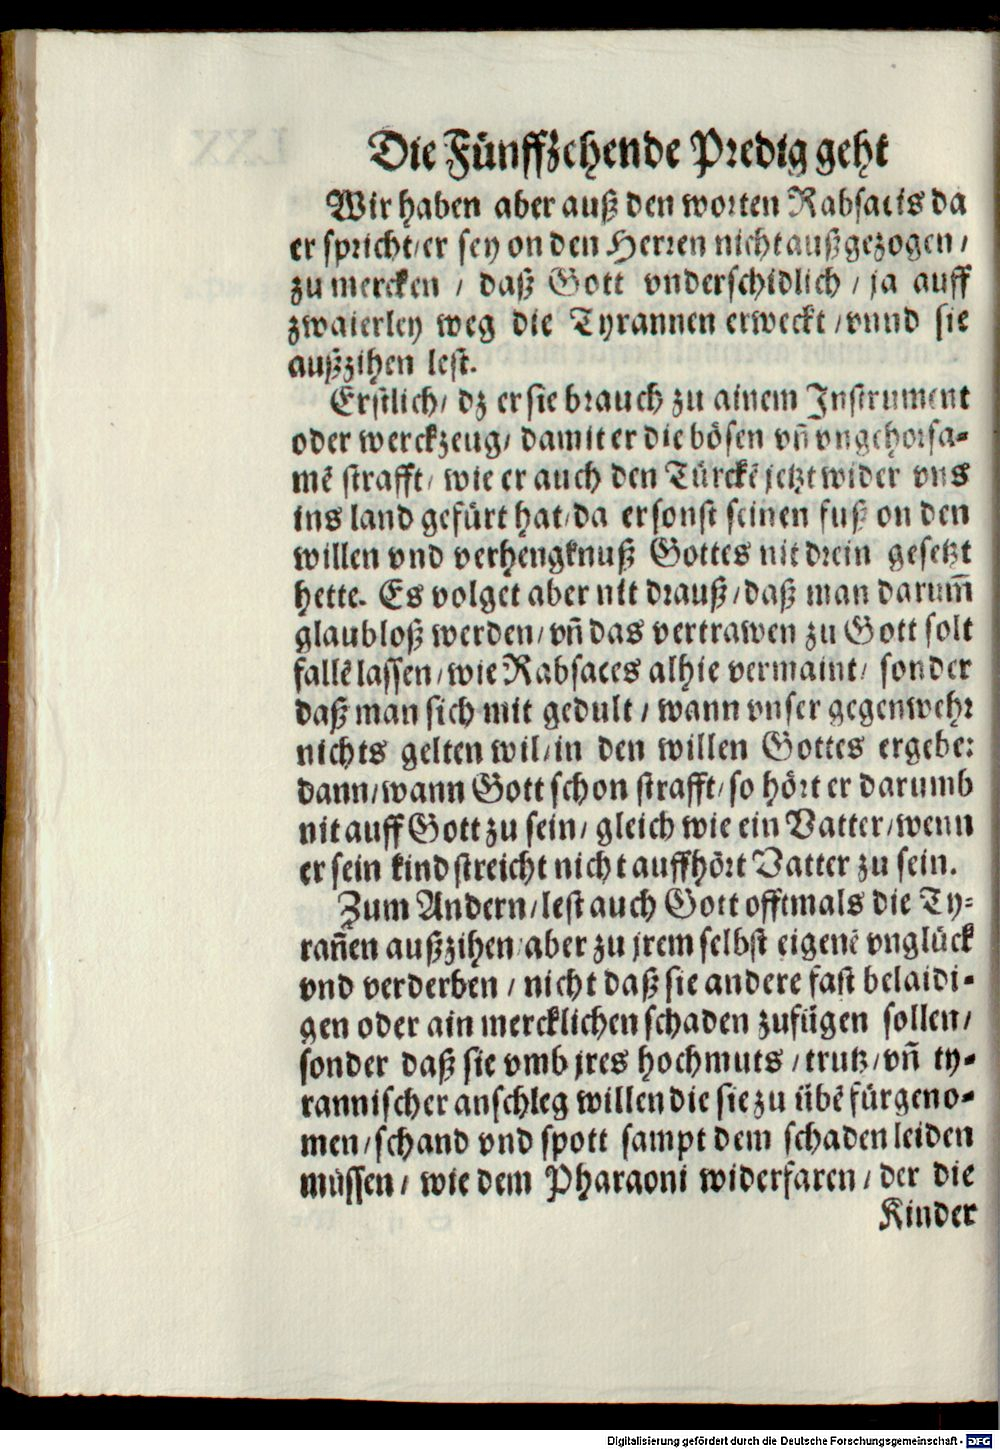 Die Fünffzehende Predig geht
Wir haben aber auß den worten Rabsacis da
er spricht/er sey on den Herren nicht außgezogen/
zu mercken / daß Gott vnderschidlich / ja auff
zwaierley weg die Tyrannen erweckt /vnnd sie
außzihen lest.
Erstlich/ dz er sie brauch zu ainem Instrument
oder werckzeug/ damit er die bösen vñ vngehorsa-
mē strafft/ wie er auch den Türckē jetzt wider vns
ins land gefürt hat/da er sonst seinen fuß on den
willen vnd verhengknuß Gottes nit drein gesetzt
hette. Es volget aber nit drauß/daß man darum̄
glaubloß werden/vñ das vertrawen zu Gott solt
fallē lassen/wie Rabsaces alhie vermaint/ sonder
daß man sich mit gedult / wann vnser gegenwehr
nichts gelten wil/in den willen Gottes ergebe:
dann/wann Gott schon strafft/so hört er darumb
nit auff Gott zu sein/ gleich wie ein Vatter/wenn
er sein kind streicht nicht auffhört Vatter zu sein.
Zum Andern/lest auch Gott offtmals die Ty-
rañen außzihen/aber zu jrem selbst eigenē vnglück
vnd verderben / nicht daß sie andere fast belaidi-
gen oder ain mercklichen schaden zufügen sollen/
sonder daß sie vmb jres hochmuts /trutz/vñ ty-
rannischer anschleg willen die sie zu übē fürgeno-
men/schand vnd spott sampt dem schaden leiden
müssen/ wie dem Pharaoni widerfaren/ der die
Kinder
Digitalisierung gefördert durch die Deutsche Forschungsgemeinschaft - DFG